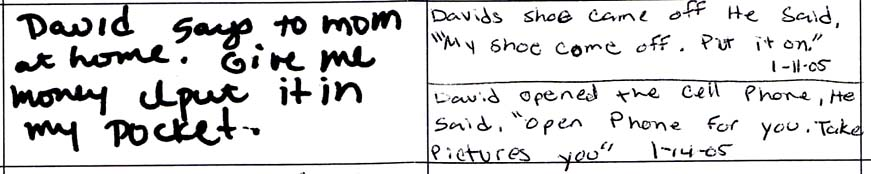 David says to mom
at home. Give me
money I put it in
my pocket.
Davids shoe came off He Said,
"My shoe come off. Put it on."
1-11-05
David opened the cell Phone, He
Said, "open Phone for you. Take
Pictures you" 1-14-05